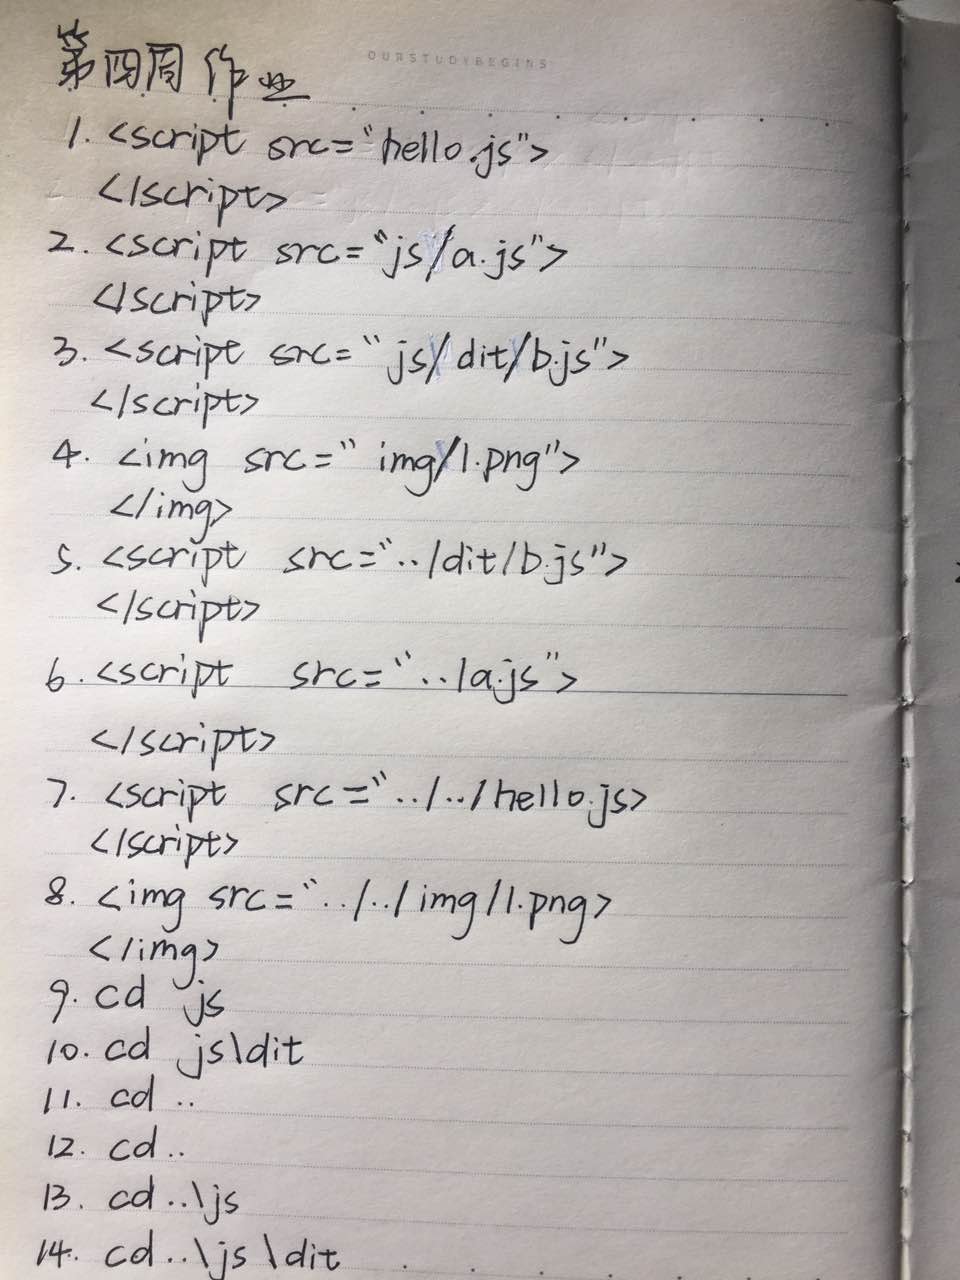 OURSTUDYBEGINS
第四周作业
1. <script src="hello.js">
</script>
2. <script src="js/a.js">
</script>
3. <script src="js/dit/b.js">
</script>
4. <img src="img/1.png">
</img>
5. <script src="../dit/b.js">
</script>
6. <script src="../a.js">
</script>
7. <script src="../../hello.js>
</script>
8. <img src="../../img/1.png>
</img>
9. cd js
10. cd js\dit
11. cd ..
12. cd..
13. cd..\js
14. cd..\js\dit